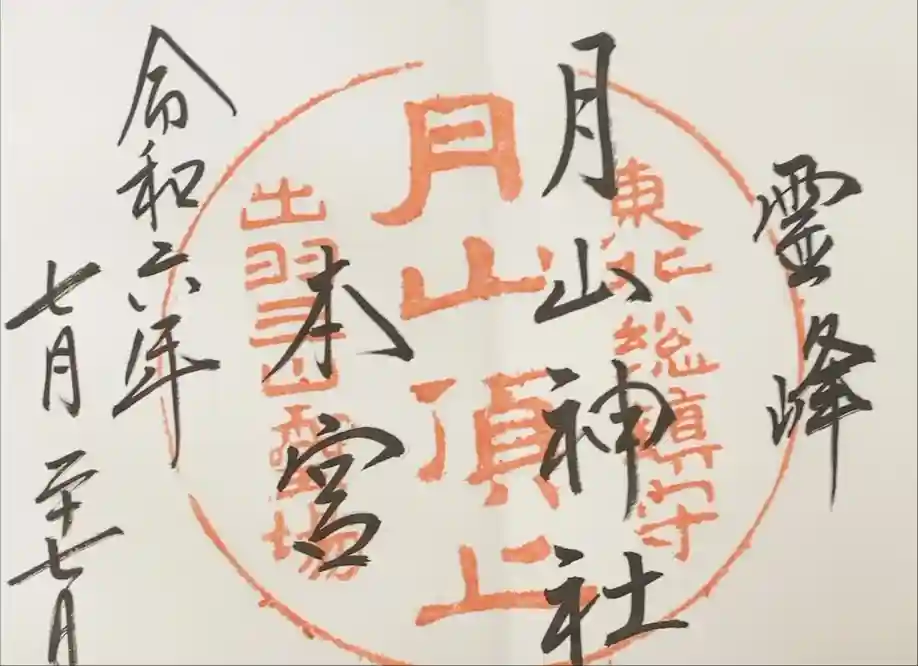 霊峰
月山神社
本宮
令和六年
七月二十七日
東北総鎮守
月山頂上
出羽三山靈場